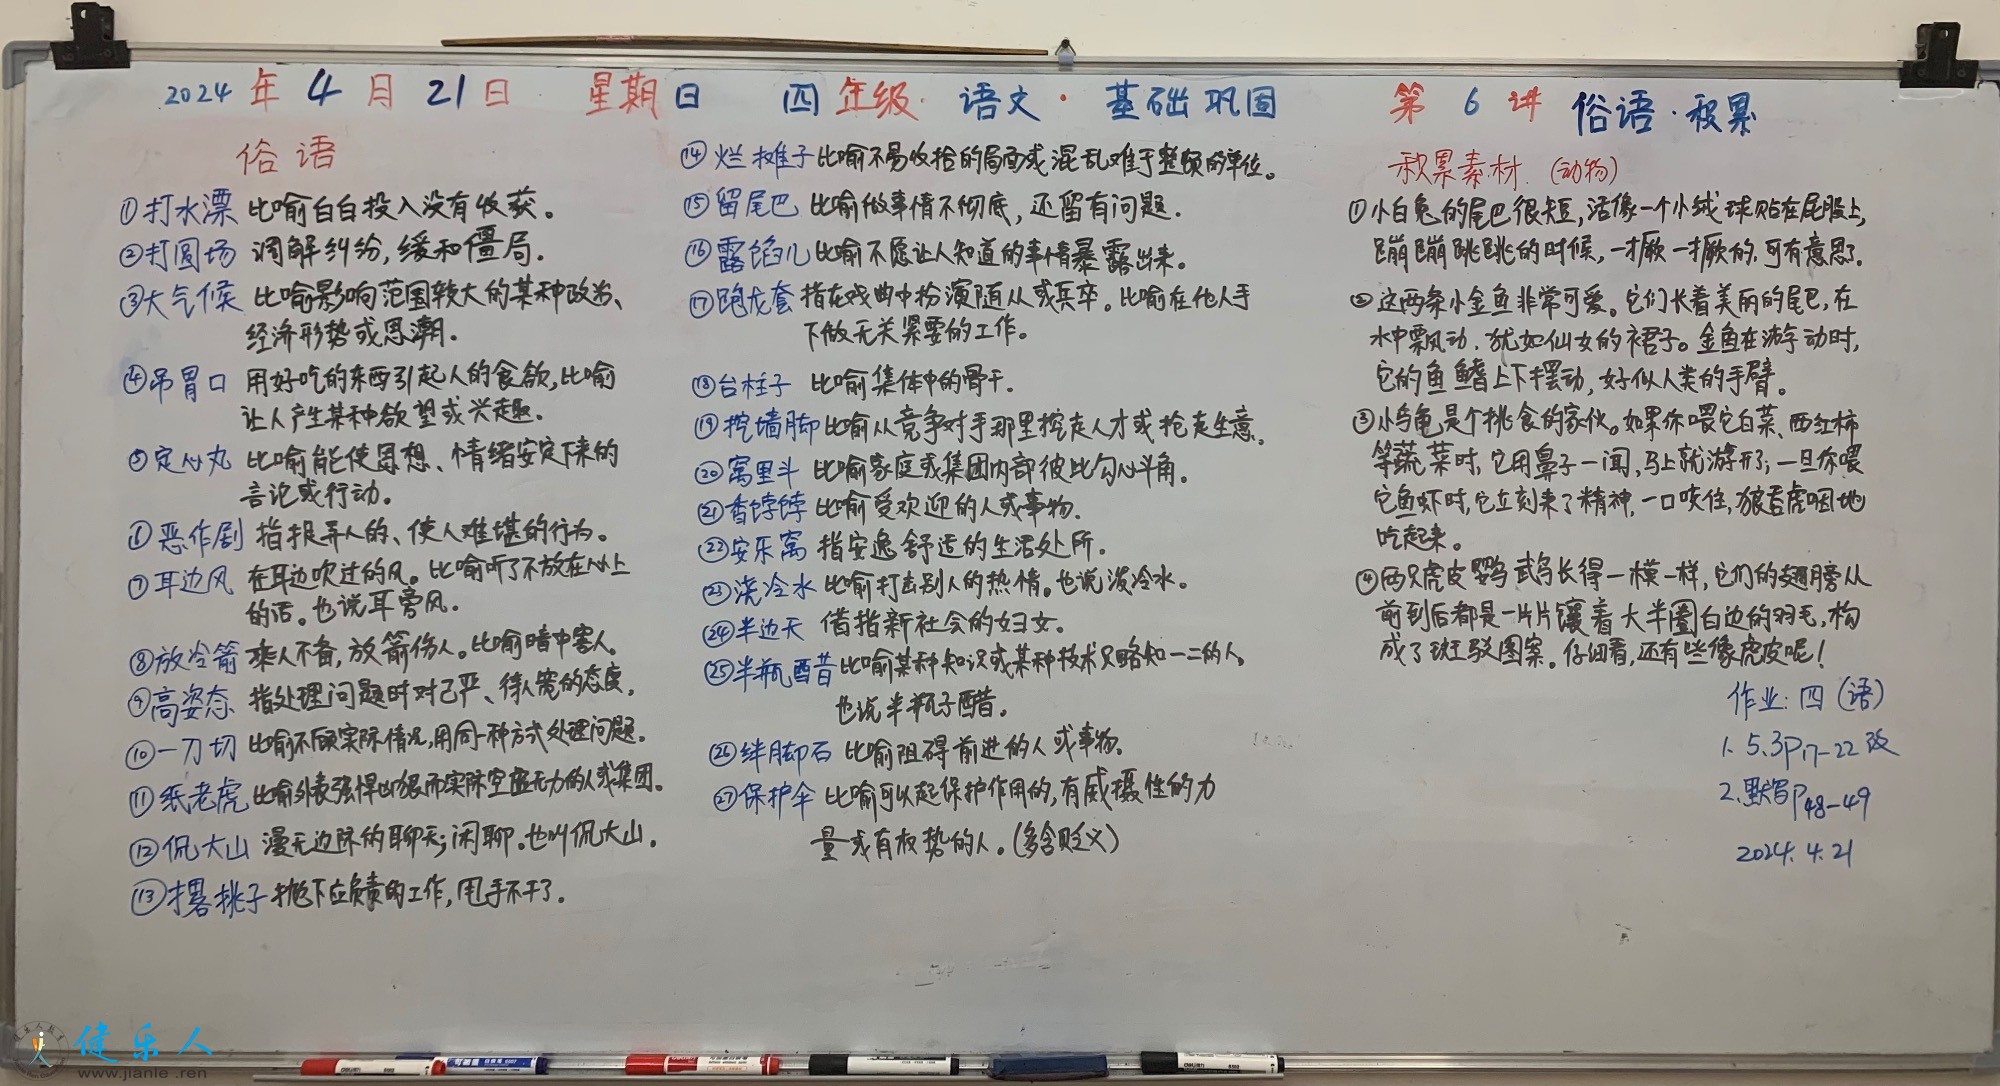 2024年4月21日 星期日 四年级·语文·基础巩固 第6讲 俗语·积累
俗语
①打水漂 比喻白白投入没有收获。
②打圆场 调解纠纷,缓和僵局.
③大气候 比喻影响范围较大的某种政治、
经济形势或思潮.
④吊胃口 用好吃的东西引起人的食欲,比喻
让人产生某种欲望或兴趣.
⑤定心丸 比喻能使思想、情绪安定下来的
言论或行动。
①恶作剧 指捉弄人的、使人难堪的行为。
⑦耳边风 在耳边吹过的风。比喻听了不放在心上
的话。也说耳旁风.
⑧放冷箭 乘人不备,放箭伤人。比喻暗中害人。
⑨高姿态 指处理问题时对己严、待人宽的态度.
⑩一刀切 比喻不顾实际情况,用同一种方式处理问题.
⑪纸老虎 比喻外表强悍凶狠而实际空虚无力的人或集团。
⑫侃大山 漫无边际的聊天;闲聊。也叫侃大山.
⑬撂挑子 抛下应负责的工作,甩手不干了.
⑭烂摊子 比喻不易收拾的局面或混乱难于整顿的单位。
⑮留尾巴 比喻做事情不彻底,还留有问题.
⑯露馅儿 比喻不愿让人知道的事情暴露出来。
⑰跑龙套 指在戏曲中扮演随从或兵卒。比喻在他人手
下做无关紧要的工作。
⑱台柱子 比喻集体中的骨干.
⑲挖墙脚 比喻从竞争对手那里挖走人才或抢走生意.
⑳窝里斗 比喻家庭或集团内部彼此勾心斗角。
㉑香饽饽 比喻受欢迎的人或事物.
㉒安乐窝 指安逸舒适的生活处所.
㉓浇冷水 比喻打击别人的热情。也说泼冷水.
㉔半边天 借指新社会的妇女.
㉕半瓶醋 比喻某种知识或某种技术只略知一二的人.
也说半瓶子醋.
㉖绊脚石 比喻阻碍前进的人或事物.
㉗保护伞 比喻可以起保护作用的,有威慑性的力
量或有权势的人。(多含贬义)
积累素材.(动物)
①小白兔的尾巴很短,活像一个小绒球贴在屁股上,
蹦蹦跳跳的时候,一撅一撅的,可有意思了.
②这两条小金鱼非常可爱。它们长着美丽的尾巴,在
水中飘动.犹如仙女的裙子。金鱼在游动时,
它的鱼鳍上下摆动,好似人类的手臂。
③小乌龟是个挑食的家伙。如果你喂它白菜、西红柿
等蔬菜时,它用鼻子一闻,马上就游开了;一旦你喂
它鱼虾时,它立刻来了精神,一口咬住,狼吞虎咽地
吃起来。
④两只虎皮鹦鹉长得一模一样,它们的翅膀从
前到后都是一片片镶着大半圈白边的羽毛,构
成了斑驳图案。仔细看,还有些像虎皮呢!
作业:四(语)
1.5.3P17-22改
2.默写P48-49
2024.4.21
健乐人
www.jianle.ren